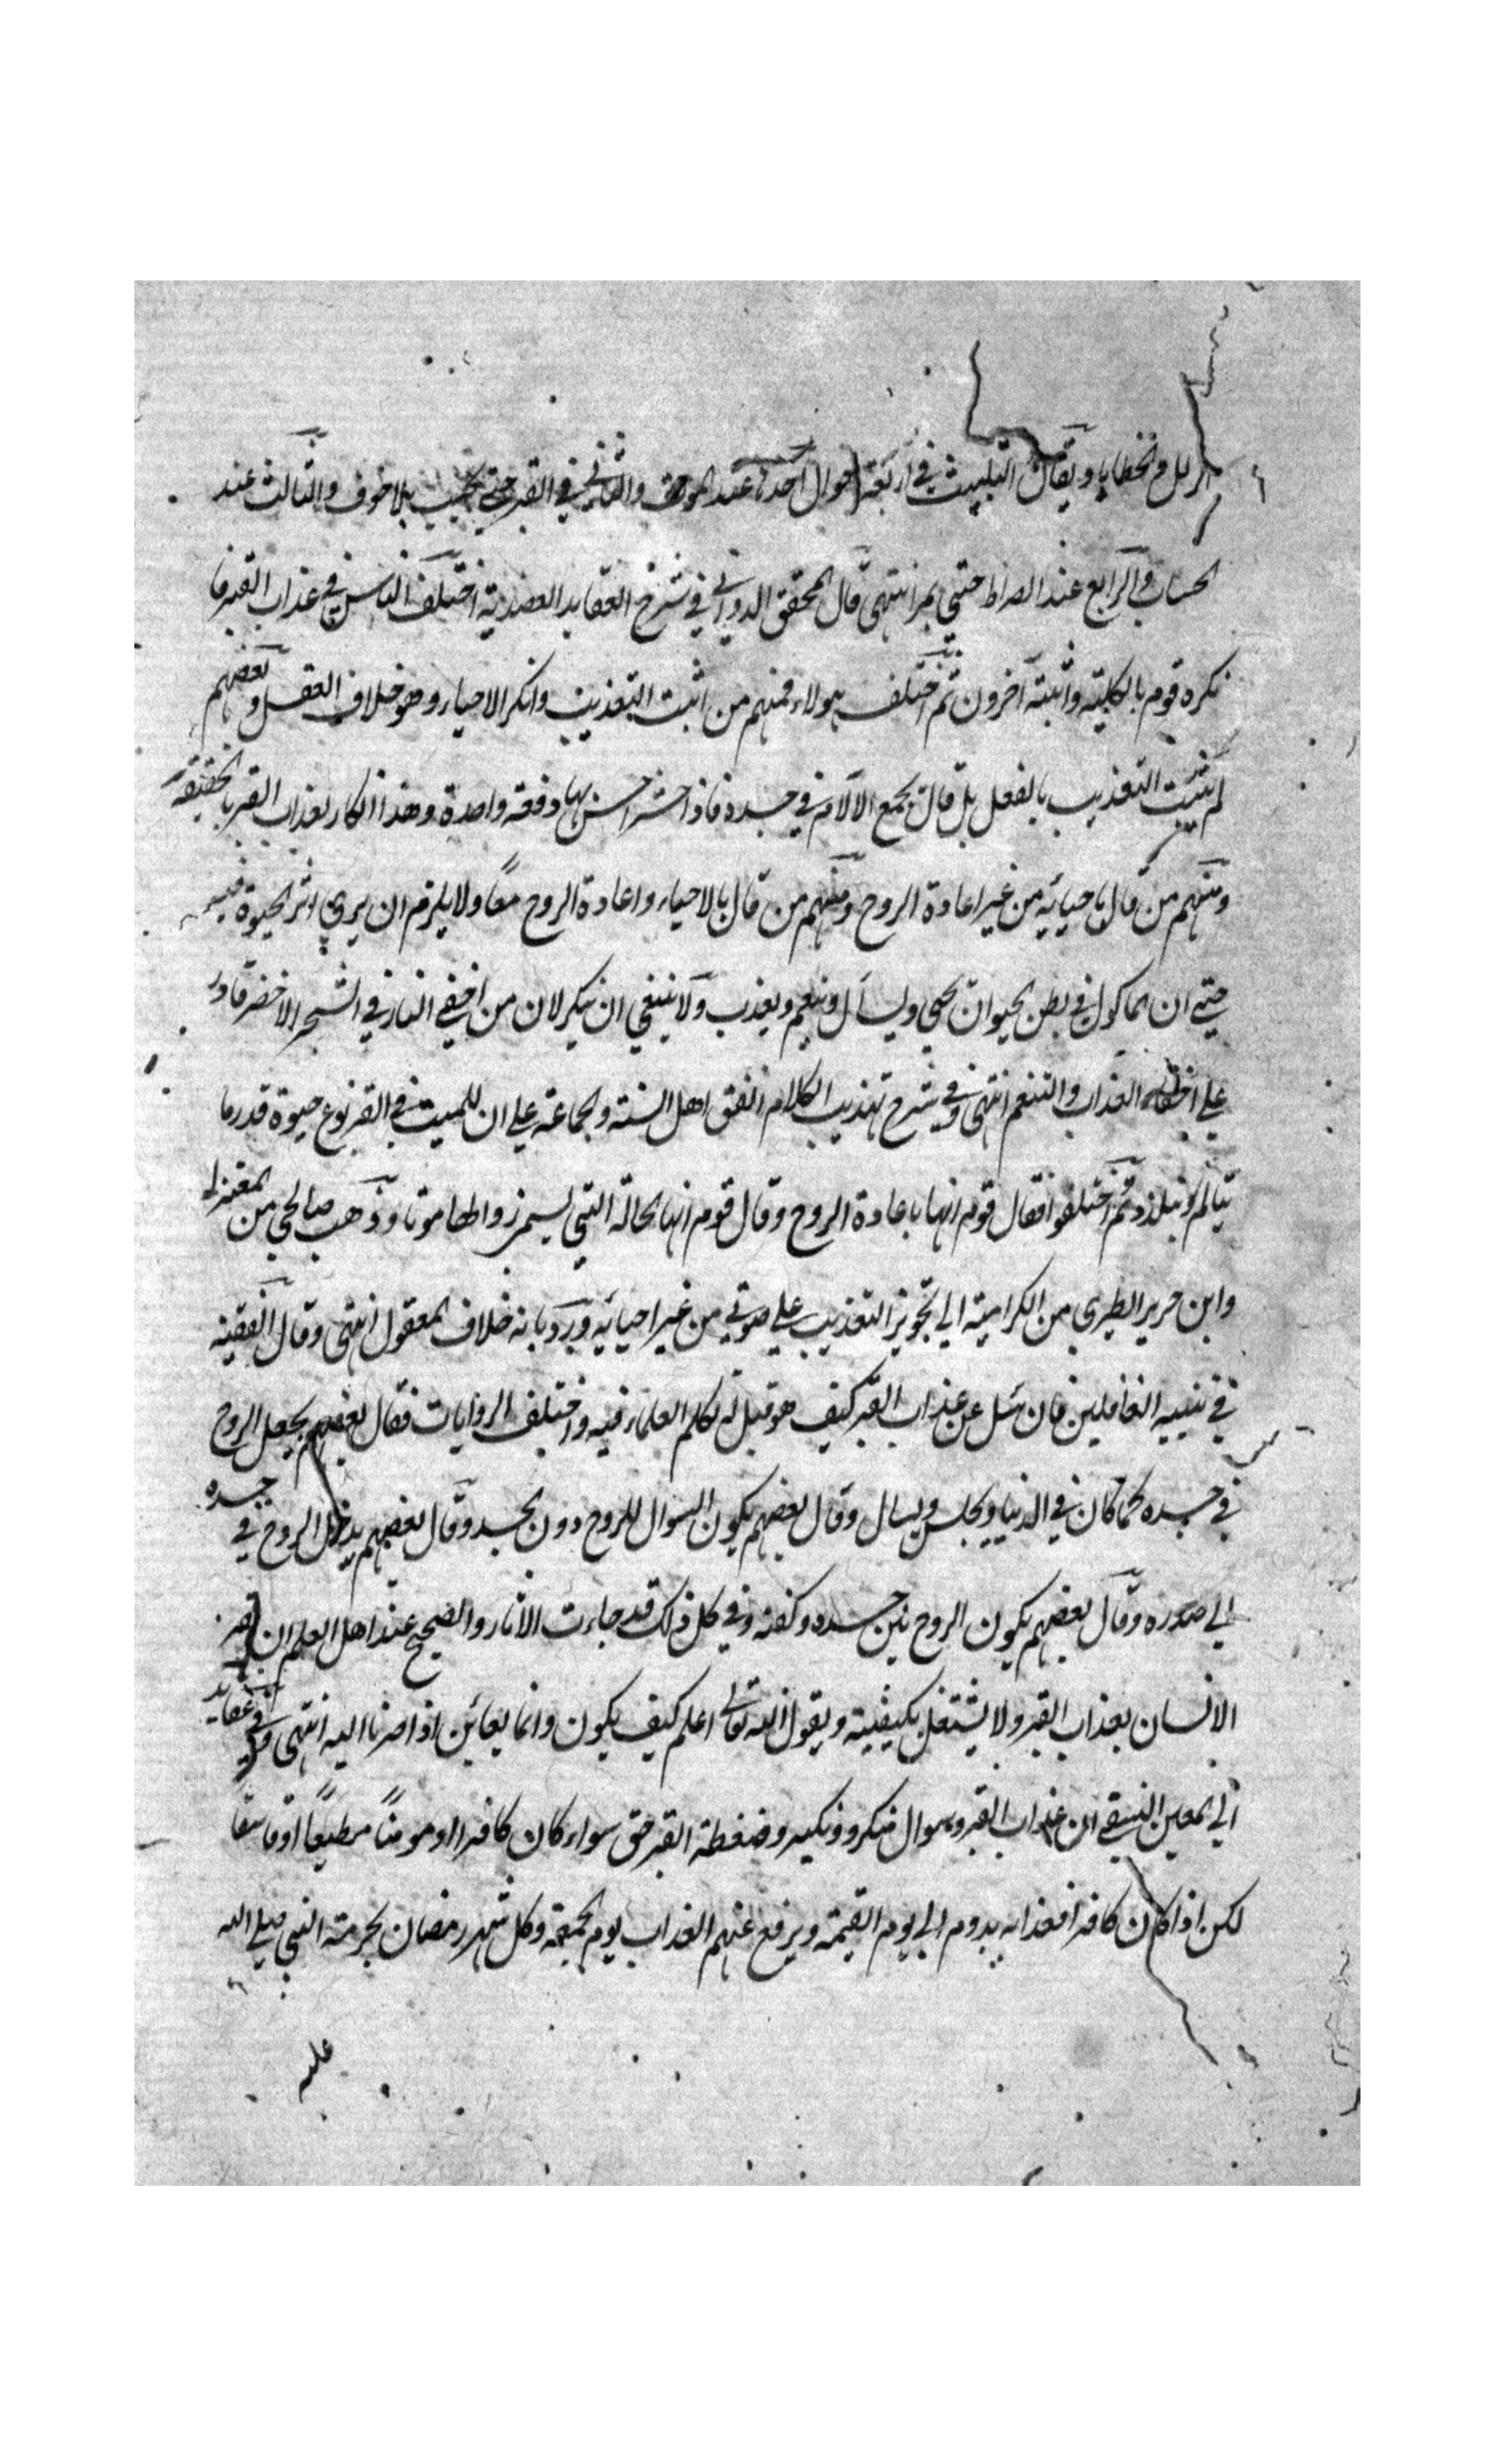 الزلل والخطايا ويقال التثبيت في اربعة احوال احدها عند الموت والثاني في القبر حتى يجيب بلا خوف والثالث عند
الحساب والرابع عند الصراط حتى يمر انتهى قال المحقق الدواني في شرح العقايد العضدية اختلف الناس في عذاب القبر فا
نكره قوم بالكلية واثبته آخرون ثم اختلف هولاء فمنهم من اثبت التعذيب وانكر الاحياء وهو خلاف العقل وبعضهم
لم يثبت التعذيب بالفعل بل قال يجمع الآلام في جسده فاذا حشر احس بها دفعة واحدة وهذا انكار لعذاب القبر بالحقيقة
ومنهم من قال باحيائه من غير اعادة الروح ومنهم من قال بالاحياء واعادة الروح معًا ولا يلزم ان يرى اثر الحيوة فيه
حتى ان الماكول في بطن الحيوان يحيى ويسأل وينعم ويعذب ولا ينبغي ان ينكر لان من اخفى النار في الشجر الاخضر قادر
على اخفاء العذاب والتنعم انتهى وفي شرح تهذيب الكلام اتفق اهل السنة والجماعة على ان للميت في القبر نوع حيوة قدر ما
يتالم ويتلذذ ثم اختلفوا فقال قوم انها باعادة الروح وقال قوم انها بحالة التي موتا وذهب صالحي من المعتزلة
وابن جرير الطبري من الكرامية الى تجويز التعذيب على موتى من غير احيائه ورد بانه خلاف المعقول انتهى وقال الفقيه
في تنبيه الغافلين فان سئل عن عذاب القبر كيف هو قيل له تكلم العلماء فيه واختلف الروايات فقال بعضهم يجعل الروح
في جسده كما كان في الدنيا ويجلس ويسال وقال بعضهم يكون السوال للروح دون الجسد وقال بعضهم يدخل الروح في جسده
الى صدره وقال بعضهم يكون الروح بين جسده وكفنه وفي كل ذلك قد جاءت الاثار والصحيح عند اهل العلم ان يقر
الانسان بعذاب القبر ولا يشتغل بكيفيته ويقول الله تعالى اعلم كيف يكون وانما يعائن اذا صرنا اليه انتهى وفي عقايد
ابي المعين النسفي ان عذاب القبر وسوال منكر ونكير وضغطة القبر حق سواء كان كافرا او مومنًا مطيعًا او فاسقا
لكن اذا كان كافرا فعذابه يدوم الى يوم القيمة ويرفع عنهم العذاب يوم الجمعة وكل شهر رمضان بحرمة النبي صلى الله
عليه